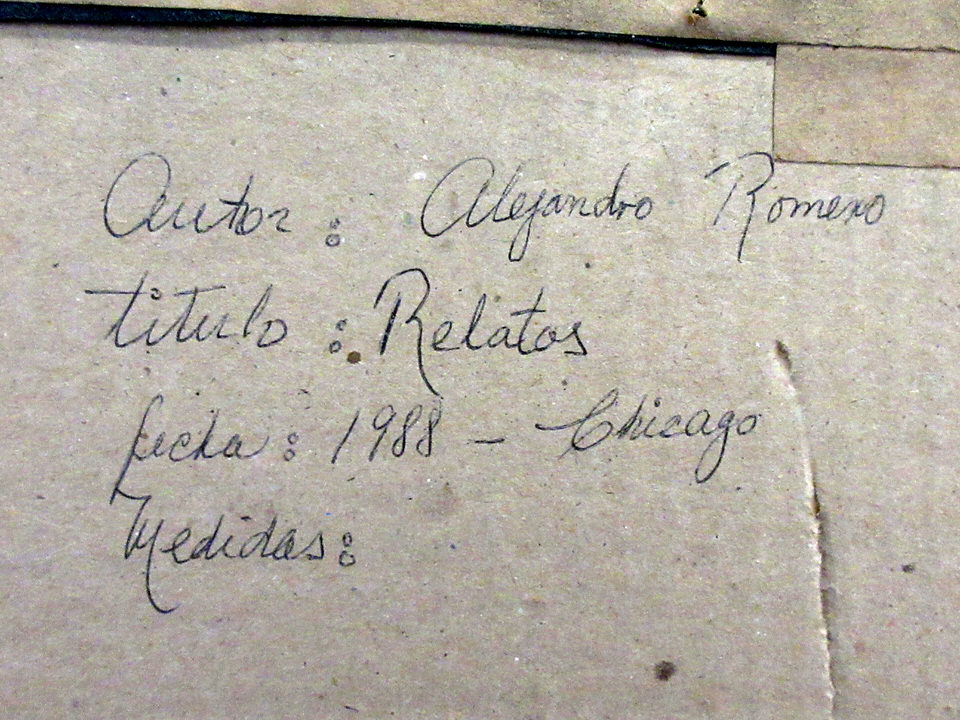 Autor: Alejandro Romero
titulo: Relatos
fecha: 1988 - Chicago
Medidas: